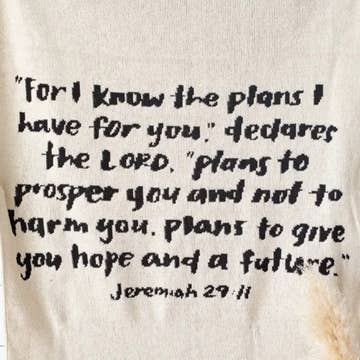 "For I know the plans I
have for you," declares
the LORD, "plans to
prosper you and not to
harm you, plans to give
you hope and a future."
Jeremiah 29:11